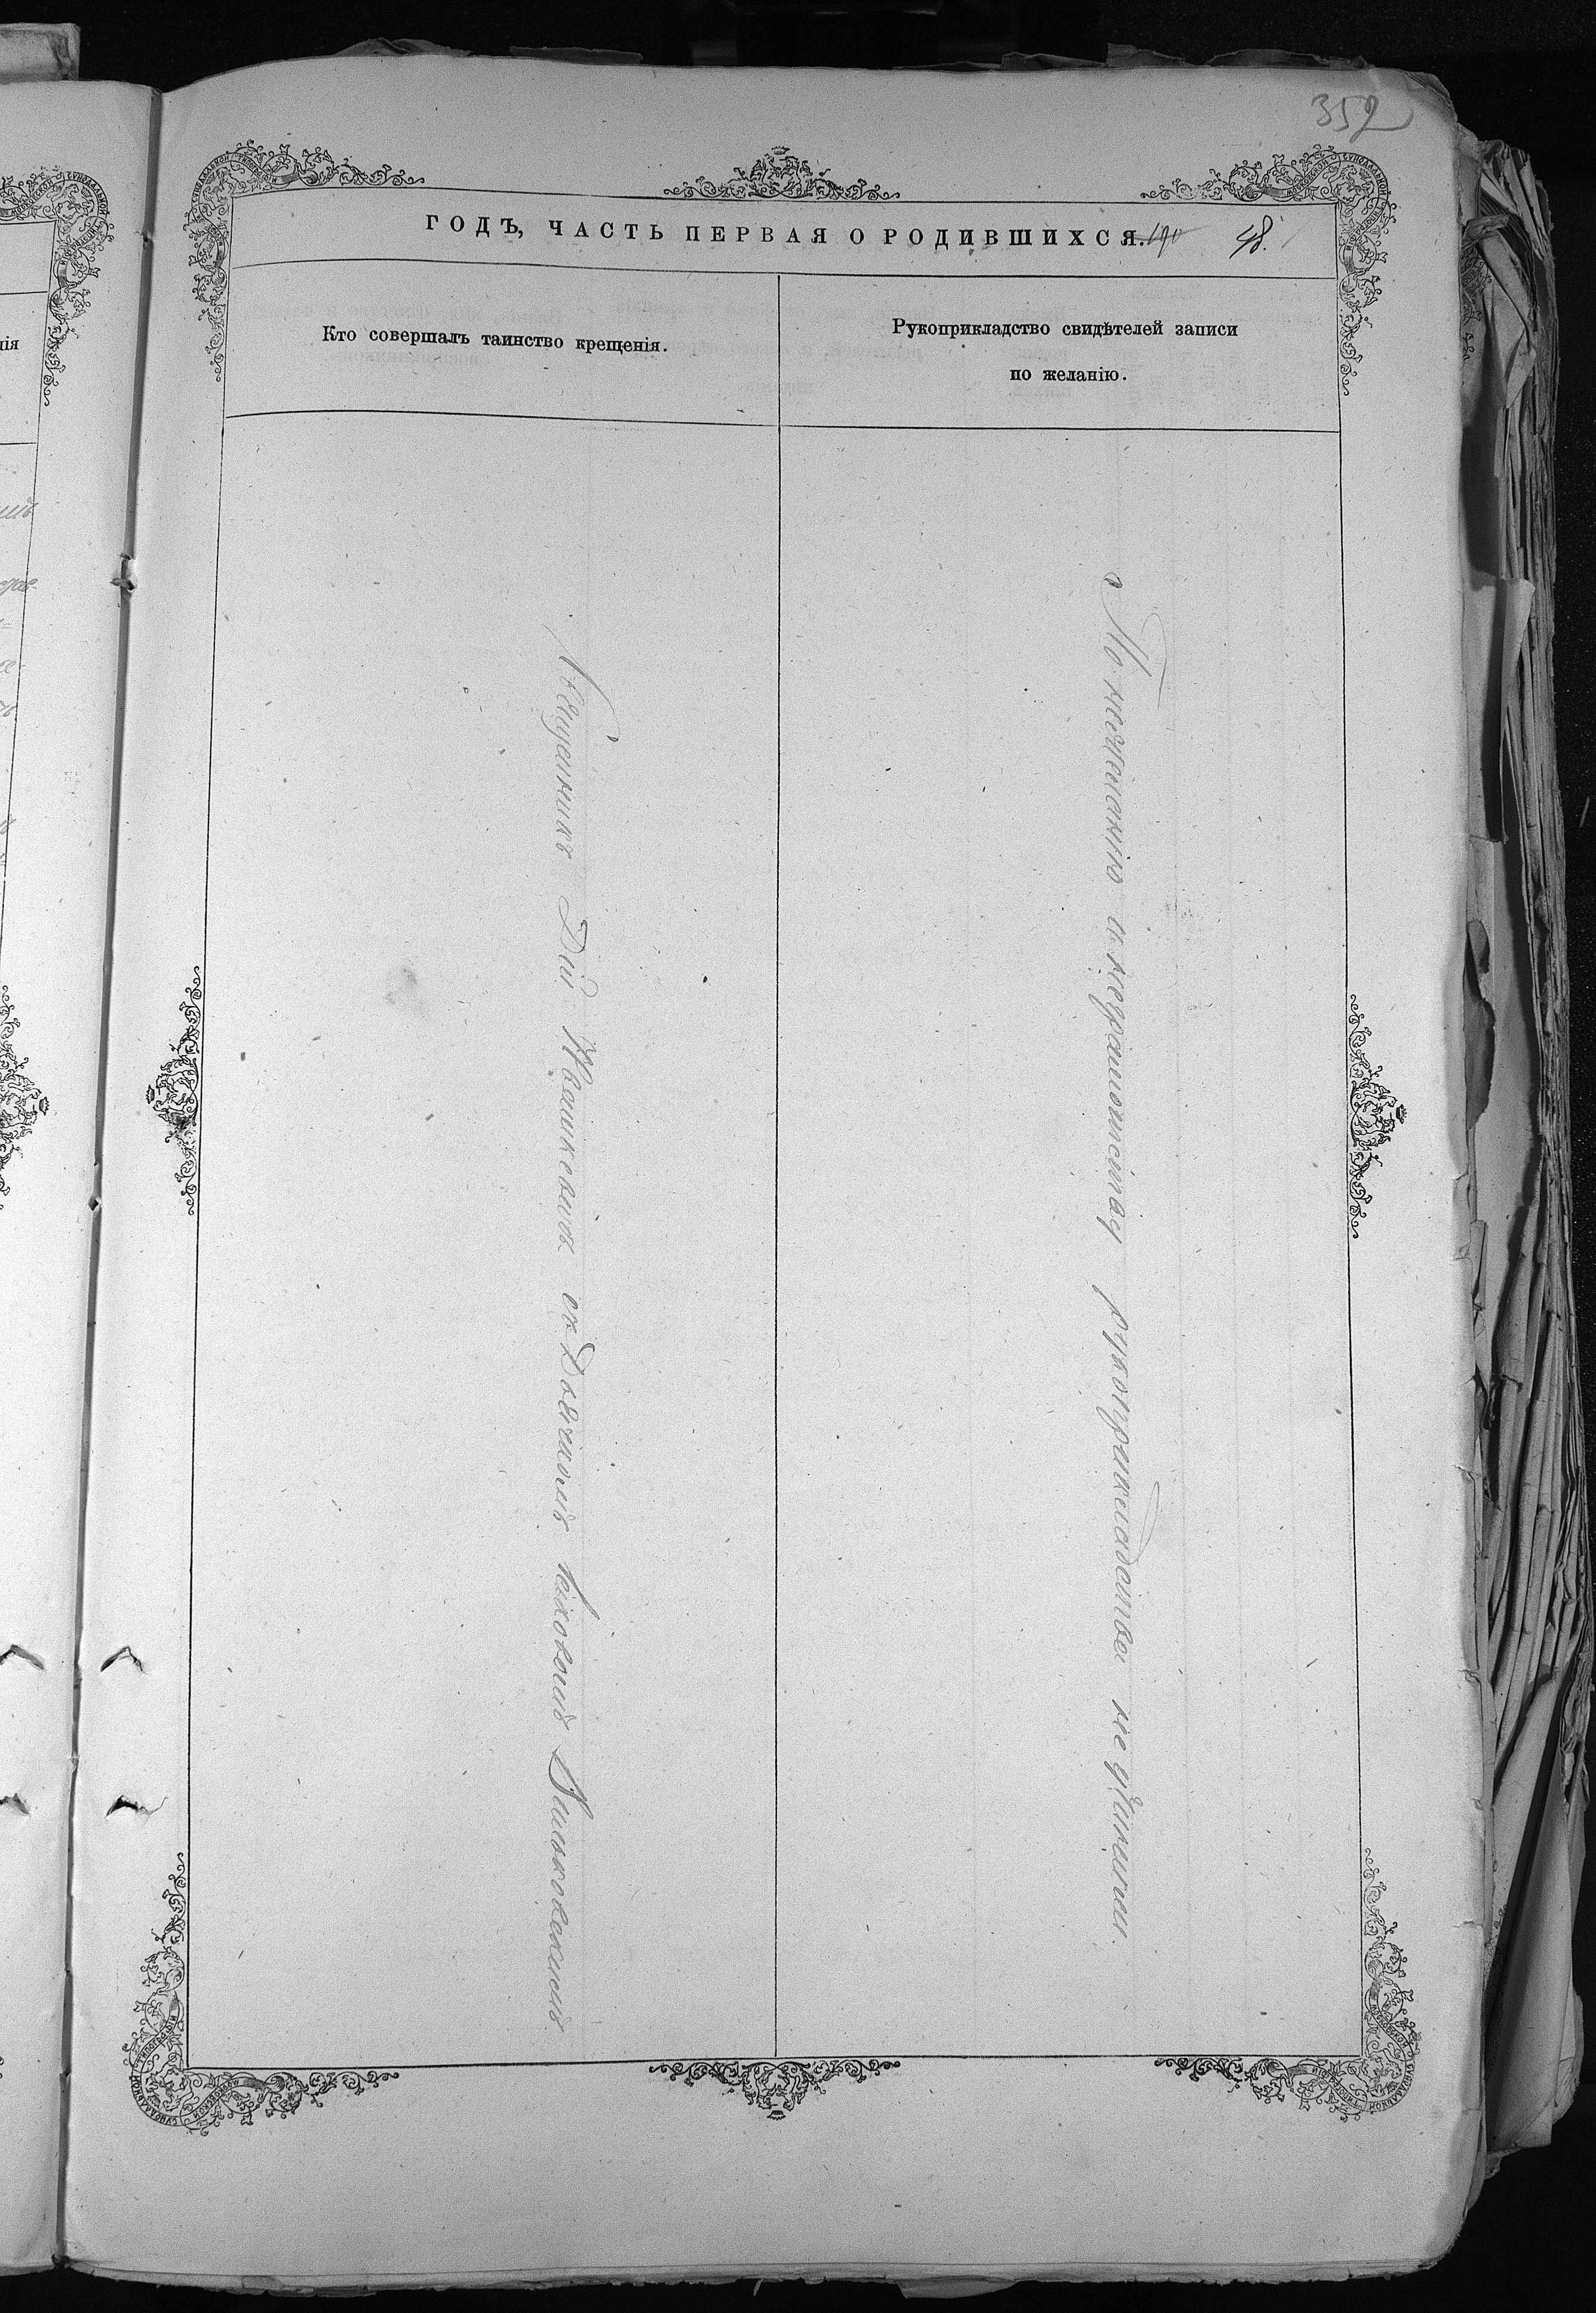 352
ГОДЪ, ЧАСТЬ ПЕРВАЯ О РОДИВШИХСЯ. 190 48.
Кто совершалъ таинство крещенія.
Рукоприкладство свидѣтелей записи
по желанію.
Священникъ Дій Ивашкевичъ съ Дьячкомъ Василькоским
По нежеланію и неграмотству рукоприкладства не учинили.